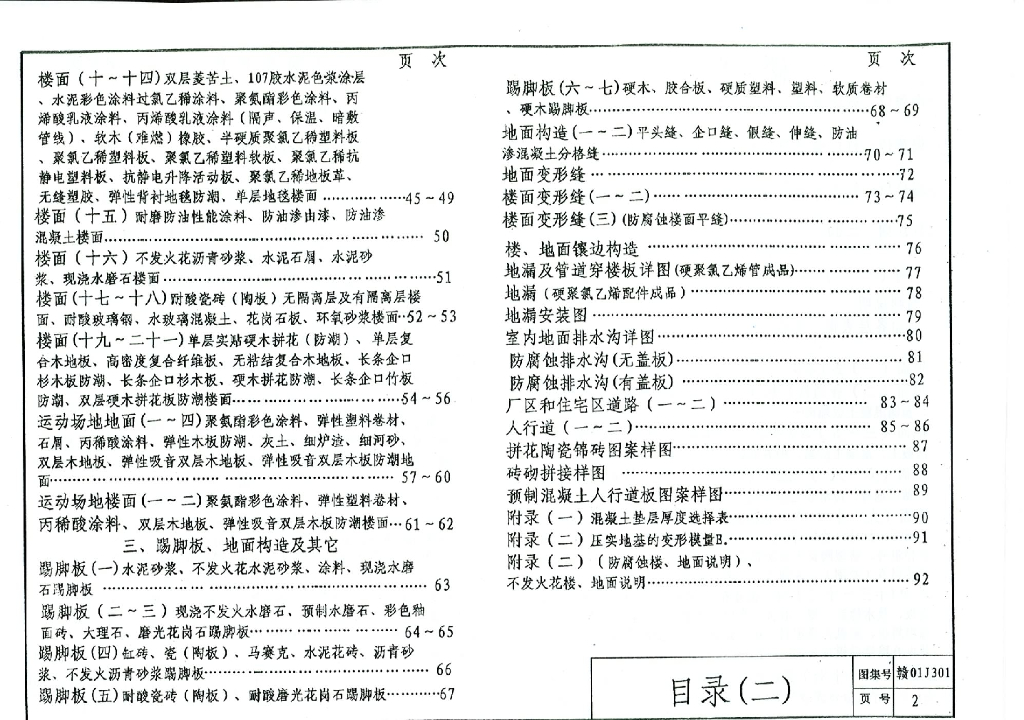 页 次
楼面（十～十四）双层菱苦土、107胶水泥色浆涂层
、水泥彩色涂料过氯乙稀涂料、聚氨酯彩色涂料、丙
烯酸乳液涂料、丙烯酸乳液涂料（隔声、保温、暗敷
管线）、软木（难燃）橡胶、半硬质聚氯乙稀塑料板
、聚氯乙稀塑料板、聚氯乙稀塑料软板、聚氯乙稀抗
静电塑料板、抗静电升降活动板、聚氯乙稀地板革、
无缝塑胶、弹性背衬地毯防潮、单层地毯楼面………………45～49
楼面（十五）耐磨防油性能涂料、防油渗由漆、防油渗
混凝土楼面………………………………………………50
楼面（十六）不发火花沥青砂浆、水泥石屑、水泥砂
浆、现浇水磨石楼面……………………………………51
楼面（十七～十八）耐酸瓷砖（陶板）无隔离层及有隔离层楼
面、耐酸玻璃钢、水玻璃混凝土、花岗石板、环氧砂浆楼面…52～53
楼面（十九～二十一）单层实贴硬木拼花（防潮）、单层复
合木地板、高密度复合纤维板、无粘结复合木地板、长条企口
杉木板防潮、长条企口杉木板、硬木拼花防潮、长条企口竹板
防潮、双层硬木拼花板防潮楼面……………………………54～56
运动场地地面（一～四）聚氨酯彩色涂料、弹性塑料卷材、
石屑、丙稀酸涂料、弹性木板防潮、灰土、细炉渣、细河砂、
双层木地板、弹性吸音双层木地板、弹性吸音双层木板防潮地
面………………………………………………………57～60
运动场地楼面（一～二）聚氨酯彩色涂料、弹性塑料卷材、
丙稀酸涂料、双层木地板、弹性吸音双层木板防潮楼面…61～62
三、踢脚板、地面构造及其它
踢脚板（一）水泥砂浆、不发火花水泥砂浆、涂料、现浇水磨
石踢脚板………………………………………………63
踢脚板（二～三）现浇不发火水磨石、预制水磨石、彩色釉
面砖、大理石、磨光花岗石踢脚板…………………………64～65
踢脚板（四）缸砖、瓷（陶板）、马赛克、水泥花砖、沥青砂
浆、不发火沥青砂浆踢脚板………………………………66
踢脚板（五）耐酸瓷砖（陶板）、耐酸磨光花岗石踢脚板…………67
页 次
踢脚板（六～七）硬木、胶合板、硬质塑料、塑料、软质卷材
、硬木踢脚板……………………………………………68～69
地面构造（一～二）平头缝、企口缝、假缝、伸缝、防油
渗混凝土分格缝…………………………………………70～71
地面变形缝………………………………………………72
楼面变形缝（一～二）……………………………………73～74
楼面变形缝（三）（防腐蚀楼面平缝）……………………75
楼、地面镶边构造………………………………………76
地漏及管道穿楼板详图（硬聚氯乙烯管成品）……………77
地漏（硬聚氯乙烯配件成品）……………………………78
地漏安装图………………………………………………79
室内地面排水沟详图……………………………………80
防腐蚀排水沟（无盖板）…………………………………81
防腐蚀排水沟（有盖板）…………………………………82
厂区和住宅区道路（一～二）……………………………83～84
人行道（一～二）…………………………………………85～86
拼花陶瓷锦砖图案样图…………………………………87
砖砌拼接样图……………………………………………88
预制混凝土人行道板图案样图……………………………89
附录（一）混凝土垫层厚度选择表…………………………90
附录（二）压实地基的变形模量E.…………………………91
附录（二）（防腐蚀楼、地面说明）、
不发火花楼、地面说明……………………………………92
目录(二)
图集号 赣01J301
页 号 2